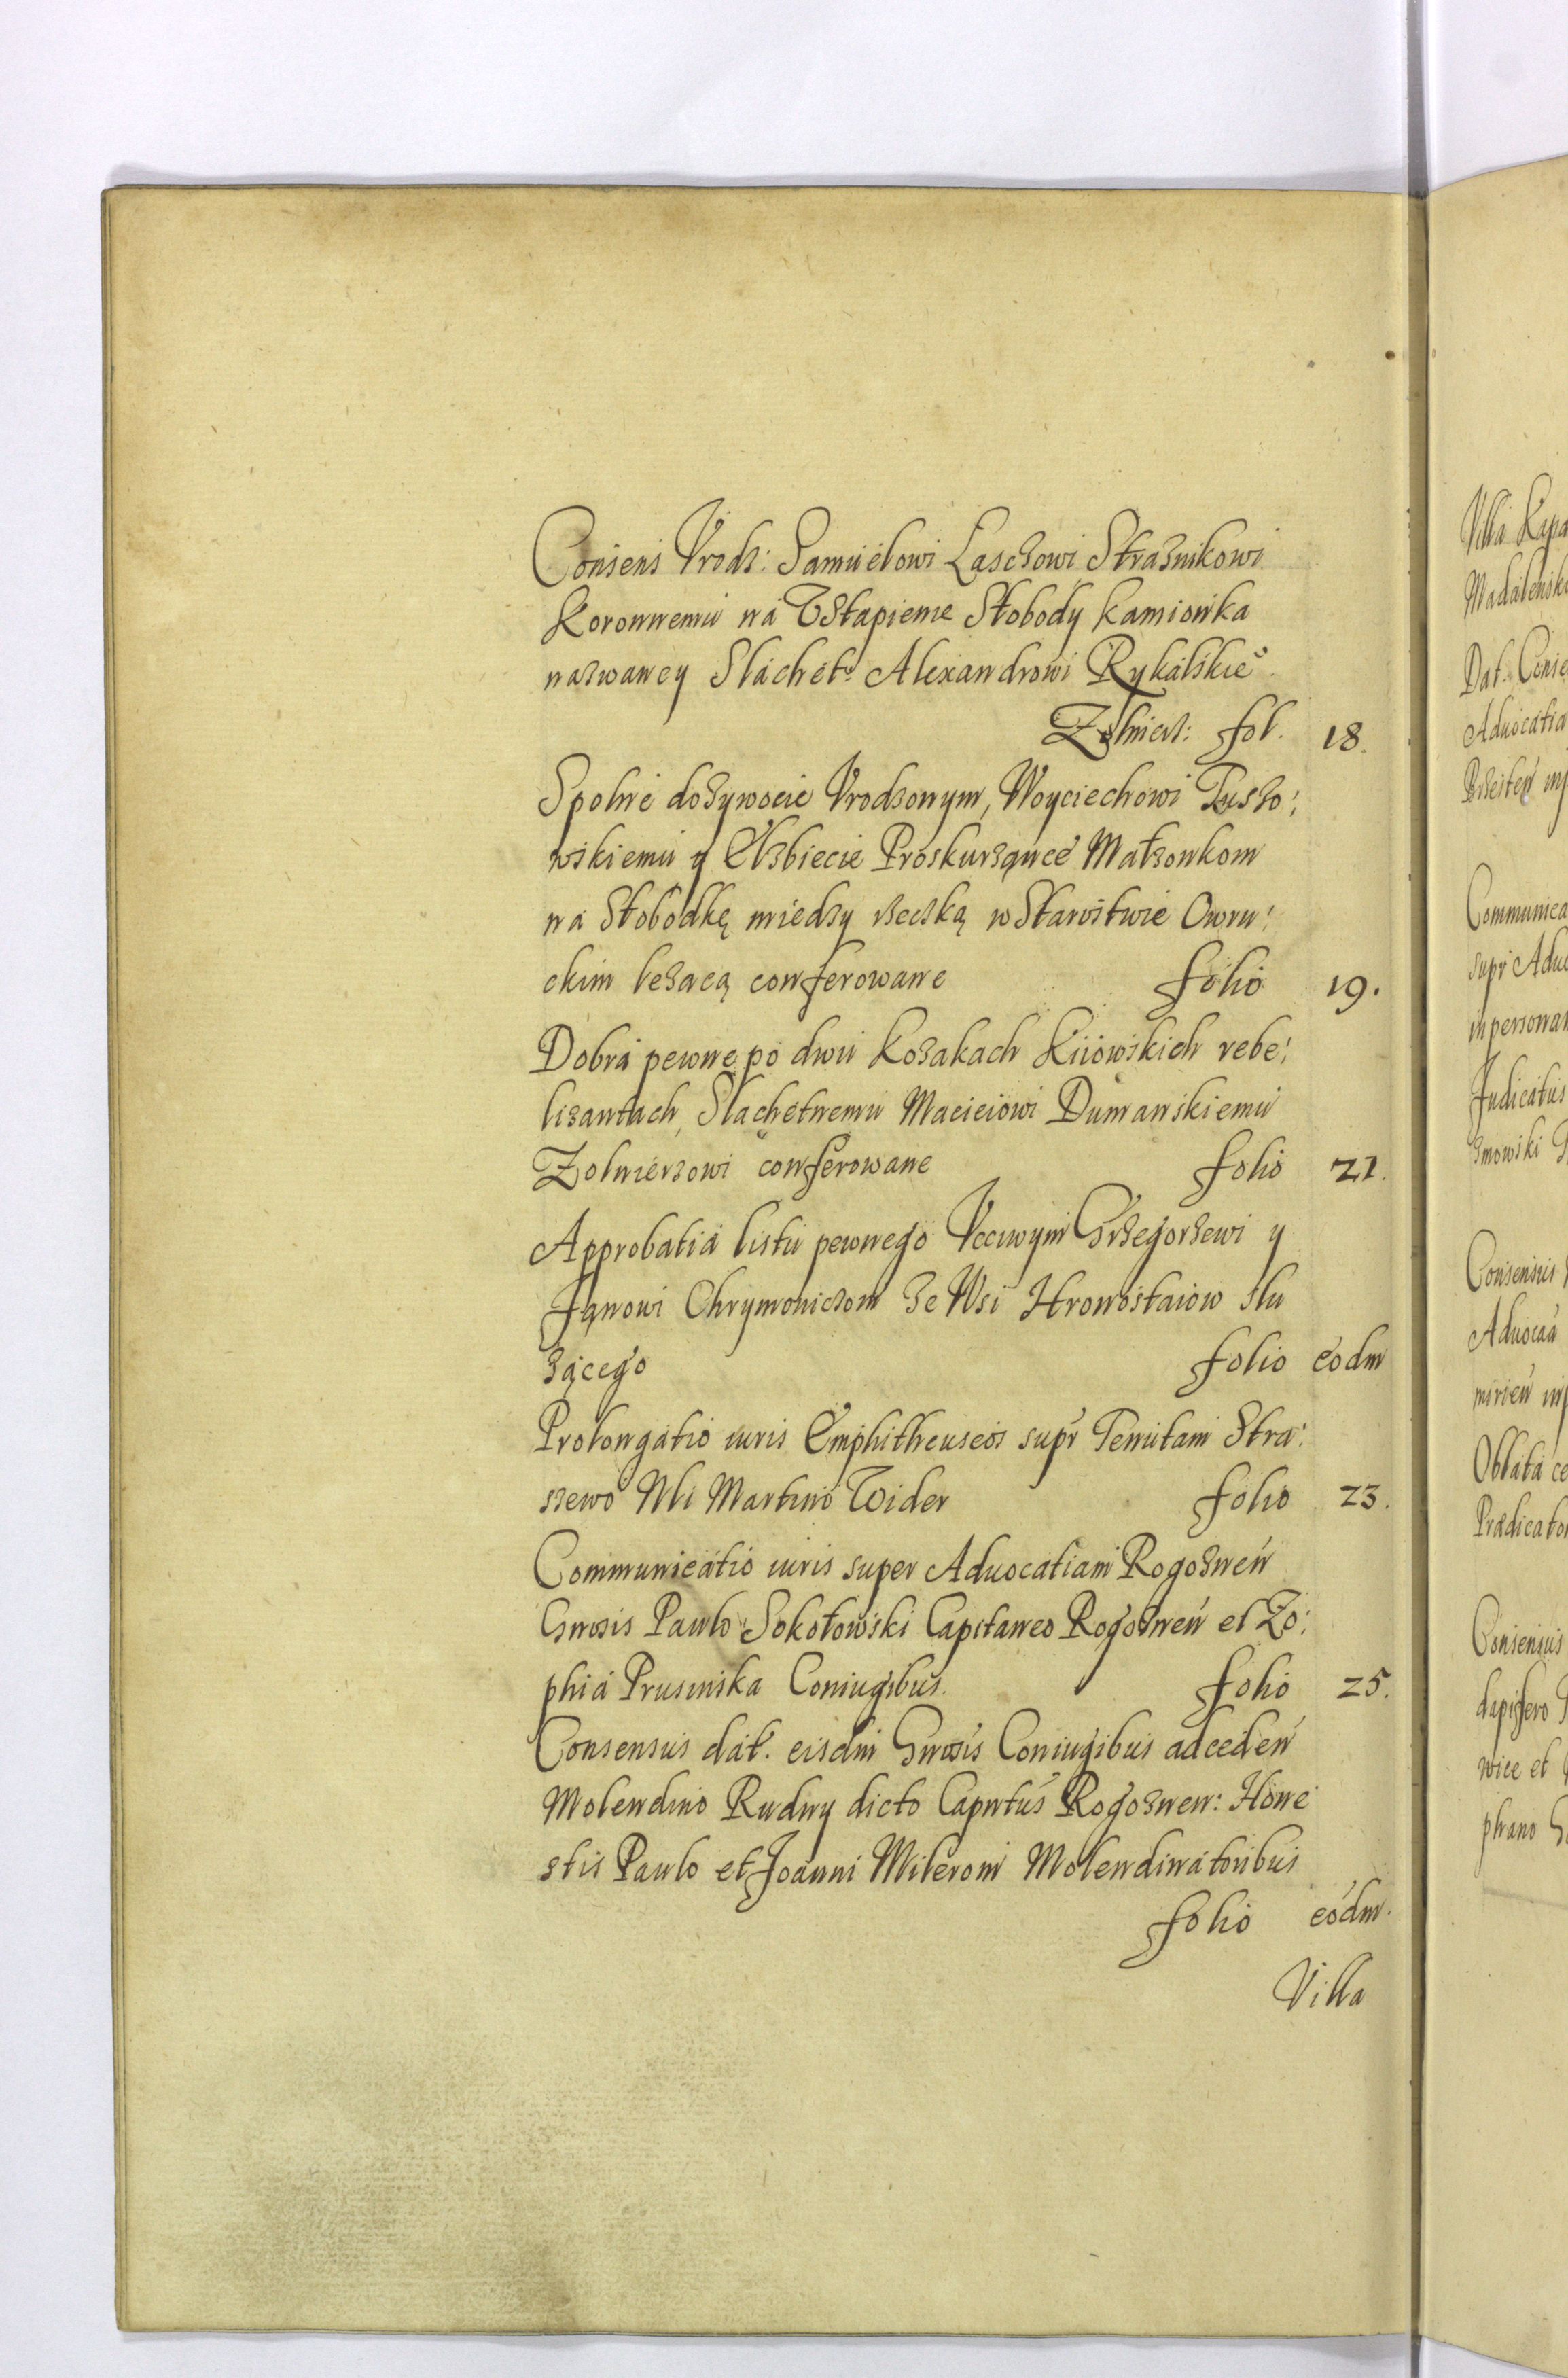 Consens Vrodz: Samuelowi Laszowi Strażnikowi
Koronnemu na Vstapienie Słobody Kamionka
nazwaney Slachet° Alexandrowi Rykalskie°
Zołnierz: fol. 18.
Spolne dożywocie Vrodzonym, Woyciechowi Puszo:
wskiemu y Elzbiecie Proskurzance Małzonkom
na Słobodkę miedzy rzeczką w Starostwie Owru:
ckim lezacą conferowane folio 19.
Dobra pewne po dwu Kozakach Kiiowskich rebe:
lizantach, Slachetnemu Macieiowi Dumanskiemu
Zolnierzowi conferowane folio 21.
Approbatia listu pewnego Vcciwym Grzegorzewi y
Janowi Chrymoniczom ze Wsi Hronostaiow slu
żącego folio eodm
Prolongatio iuris Emphitheuseos supr Tenutam Stra:
szewo Nli Martino Wider folio 23.
Communicatio iuris super Aduocatiam Rogoznen
Gnosis Paulo Sokołowski Capitaneo Rogoznen et Zo:
phia Prusinska Coniugibus. folio 25.
Consensus dat. eisdm Gnosis Coniugibus ad ceden
Molendino Rudny dicto Capntus Rogoznen: Hone
stis Paulo et Joanni Milerom Molendinatoribus
folio eodm.
Villa
Villa
Dat. Conse
Aduocatia
Communica
supr Aduo
Judicatus
Consensus
Aduocaa
Oblata ce
Prædicator
Consensus
dapifero
nice et
phano